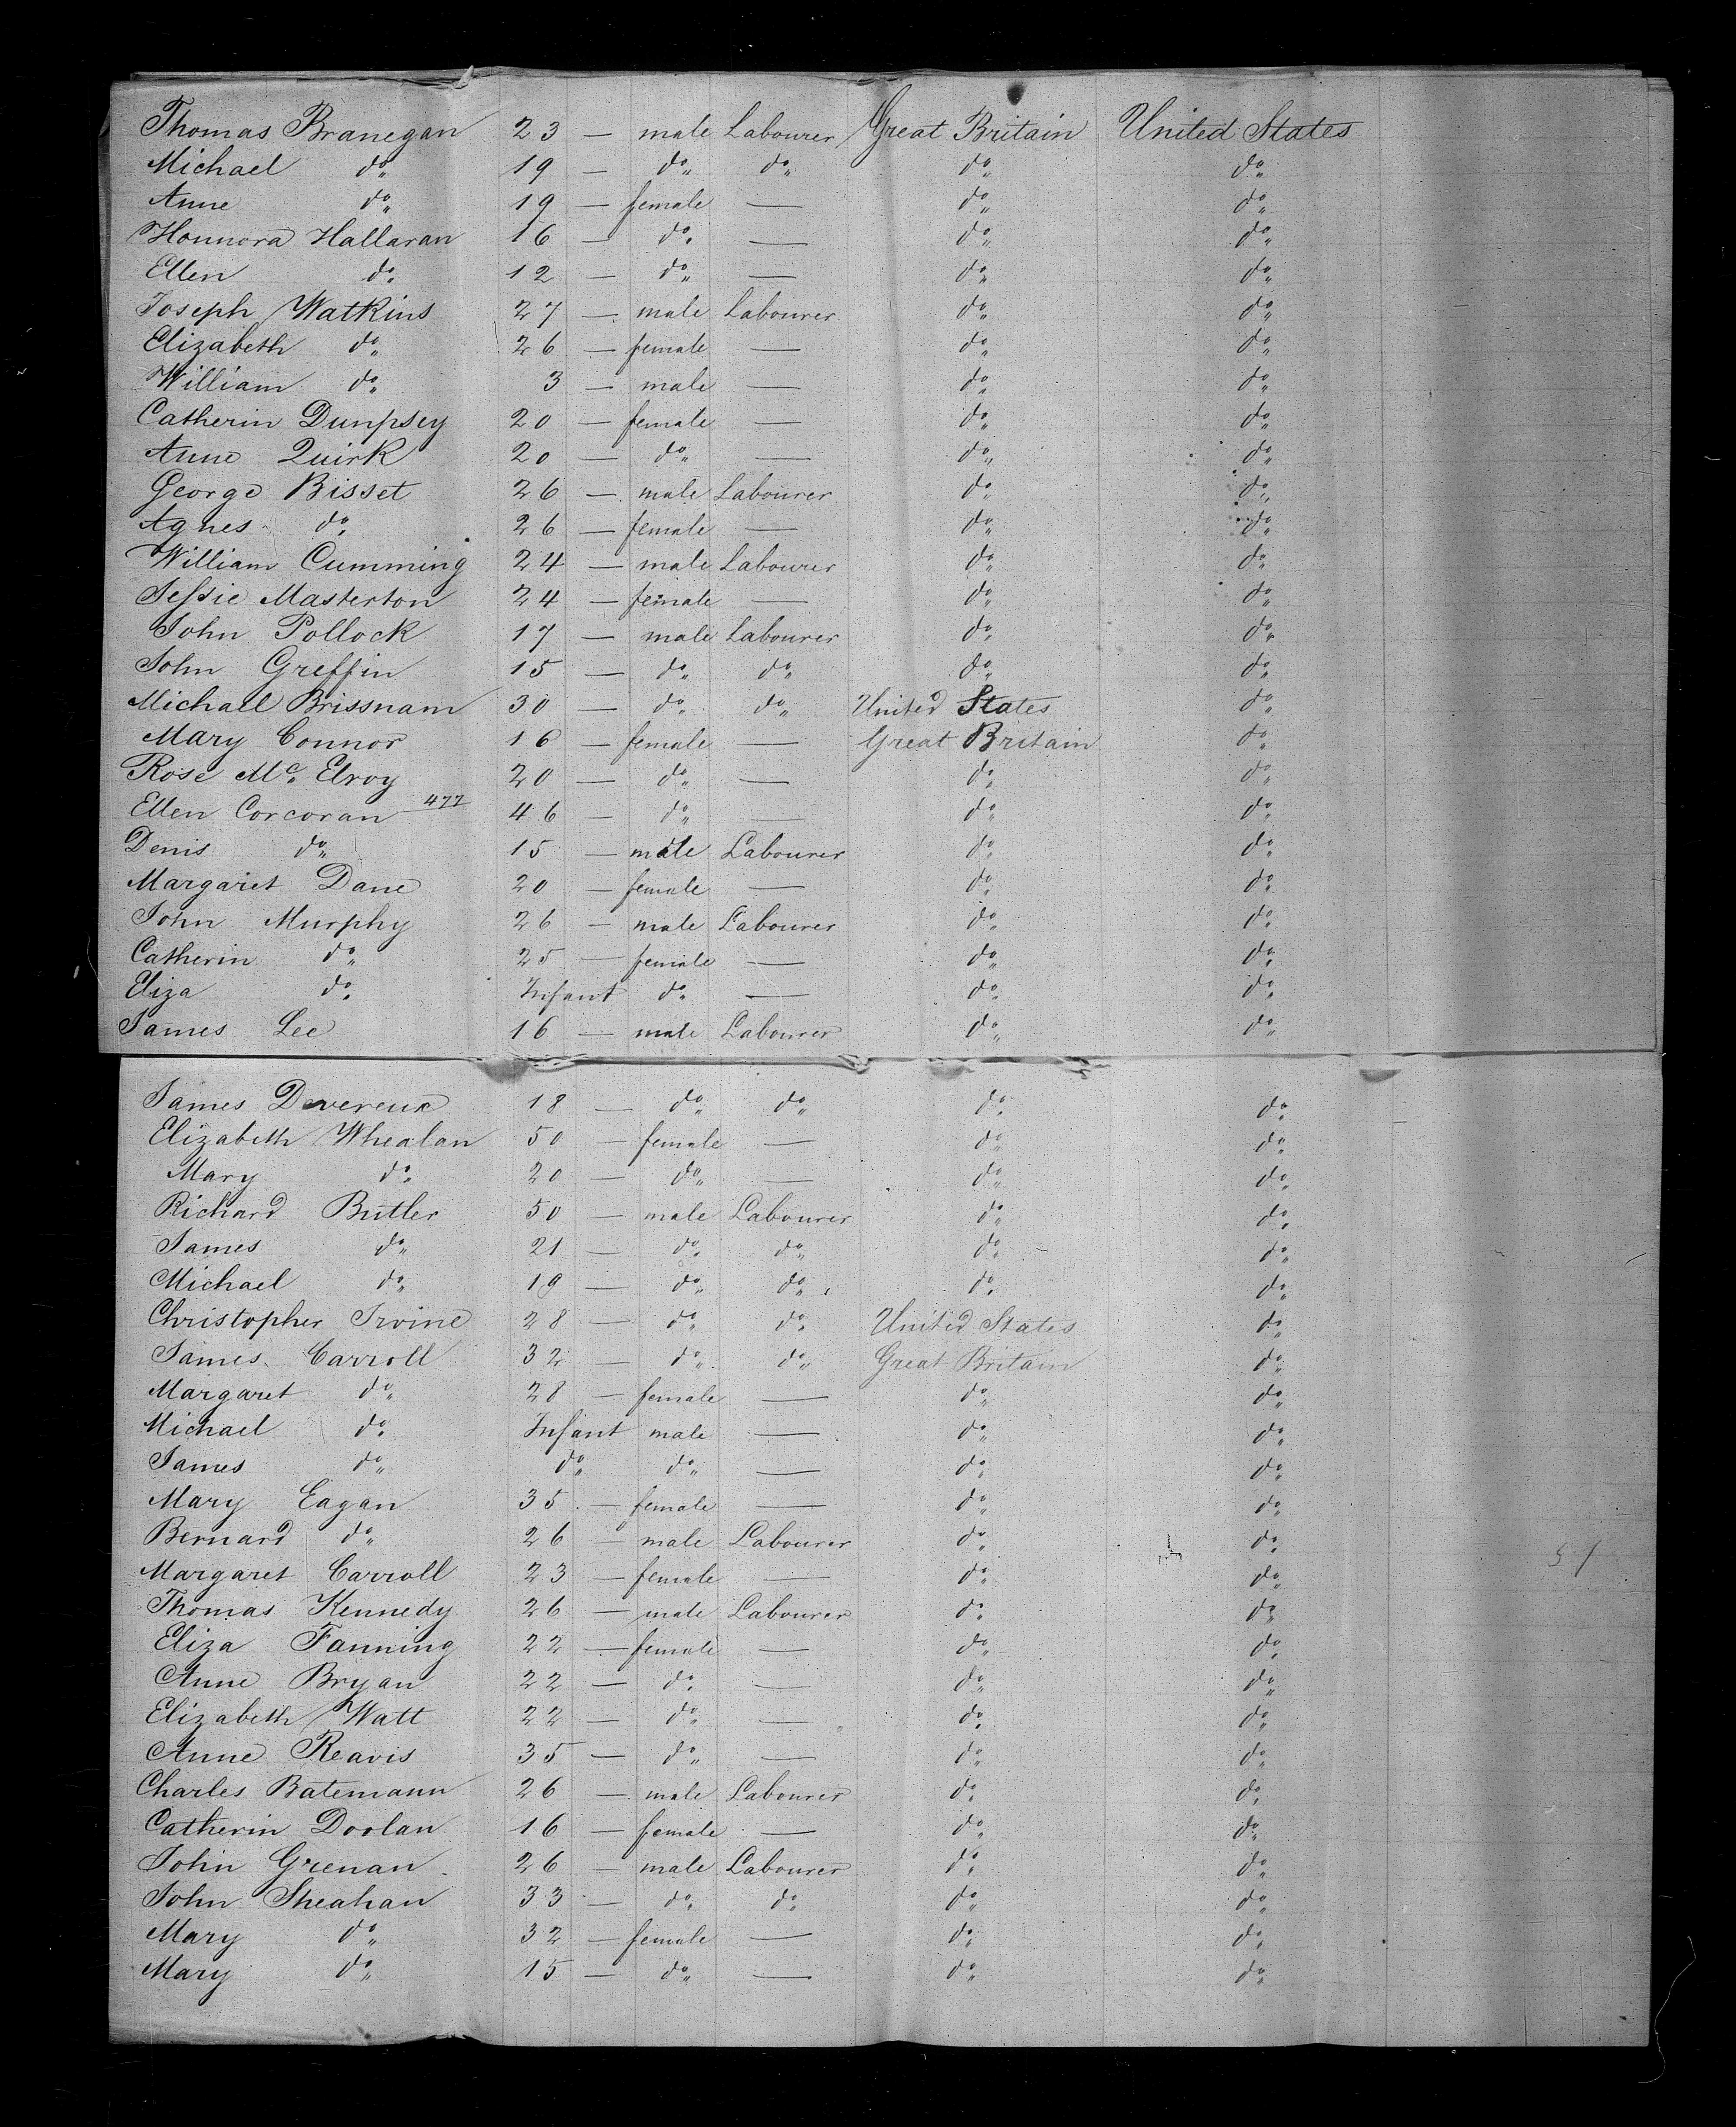 Thomas Branegan 23 — male Labourer Great Britain United States
Michael do 19 — do do do do
Anne do 19 — female — do do
Honnora Hallaran 16 — do — do do
Ellen do 12 — do — do do
Joseph Watkins 27 — male Labourer do do
Elizabeth do 26 — female — do do
William do 3 — male — do do
Catherin Dunpsey 20 — female — do do
Anne Quirk 20 — do — do do
George Bisset 26 — male Labourer do do
Agnes do 26 — female — do do
William Cumming 24 — male Labourer do do
Jessie Masterton 24 — female — do do
John Pollock 17 — male Labourer do do
John Greffin 15 — do do do do
Michael Brissnam 30 — do do United States do
Mary Connor 16 — female — Great Britain do
Rose Mc Elroy 20 — do — do do
Ellen Corcoran 477 46 — do — do do
Denis do 15 — male Labourer do do
Margaret Dane 20 — female — do do
John Murphy 26 — male Labourer do do
Catherin do 25 — female — do do
Eliza do Infant do — do do
James Lee 16 — male Labourer do do
James Devereux 18 — do do do do
Elizabeth Whealan 50 — female — do do
Mary do 20 — do — do do
Richard Butler 50 — male Labourer do do
James do 21 — do do do do
Michael do 19 — do do do do
Christopher Irvine 28 — do do United States do
James Carroll 32 — do do Great Britain do
Margaret do 28 — female — do do
Michael do Infant male — do do
James do do do — do do
Mary Eagan 35 — female — do do
Bernard do 26 — male Labourer do do
Margaret Carroll 23 — female — do do
Thomas Kennedy 26 — male Labourer do do
Eliza Fanning 22 — female — do do
Anne Bryan 22 — do — do do
Elizabeth Watt 22 — do — do do
Anne Reavis 35 — do — do do
Charles Batemann 26 — male Labourer do do
Catherin Doolan 16 — female — do do
John Grenan 26 — male Labourer do do
John Sheahan 33 — do do do do
Mary do 32 — female — do do
Mary do 15 — do — do do